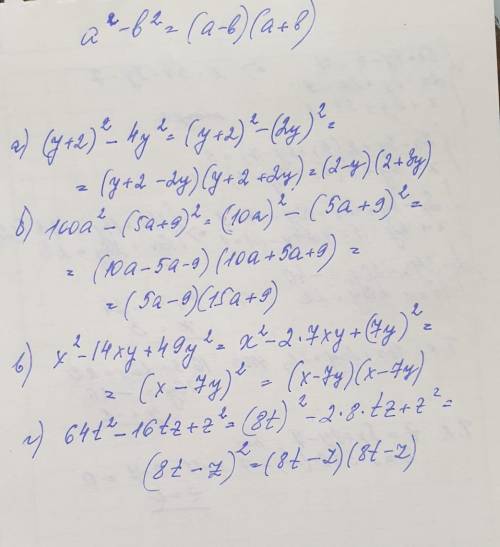 a² - b² = (a-b)(a+b)
а) (y+2)² - 4y² = (y+2)² - (2y)² =
= (y+2-2y)(y+2+2y) = (2-y)(2+3y)
б) 100a² - (5a+9)² = (10a)² - (5a+9)² =
= (10a-5a-9)(10a+5a+9) =
= (5a-9)(15a+9)
в) x² - 14xy + 49y² = x² - 2·7xy + (7y)² =
= (x-7y)² = (x-7y)(x-7y)
г) 64t² - 16tz + z² = (8t)² - 2·8·tz + z² =
(8t-z)² = (8t-z)(8t-z)